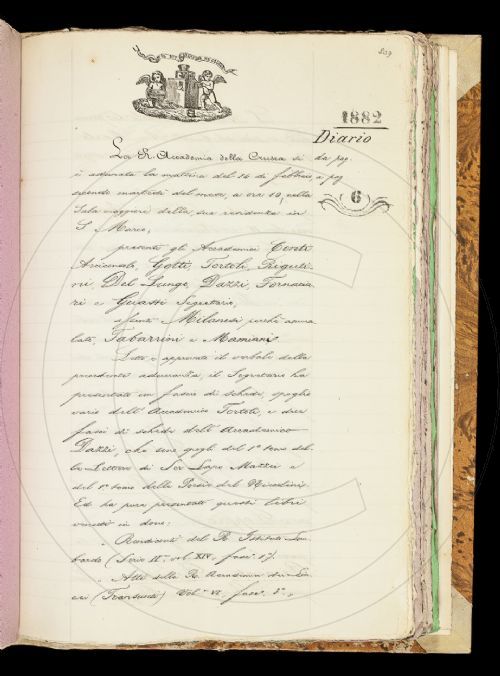 1882
Diario
6
La R. Accademia della Crusca si
è adunata la mattina del 14 di febbraio,
secondo martedì del mese, a ore 10, nella
Sala maggiore della sua residenza in
S. Marco,
presenti gli Accademici Conti
Arciconsolo, Gotti, Tortoli, Riguti-
ni, Del Lungo, Dazzi, Fornacia
ri e Guasti Segretario,
assenti Milanesi perchè amma
lato, Tabarrini e Mamiani.
Letto e approvato il verbale della
precedente adunanza, il Segretario ha
presentato un fascio di schede, spoglio
vario dell'Accademico Tortoli, e due
fasci di schede dell'Accademico
Dazzi, che sono spogli del 1° tomo del-
le Lettere di Ser Lapo Mazzei e
del 1° tomo delle Poesie del Nicolini.
Ed ha pure presentato questi libri
venuti in dono:
„ Rendiconti del R. Istituto Lom
bardo (Serie II.ª vol. XIV, fasc.
„ Atti della R. Accademia dei Lin
cei (Transunti) Vol. VI, fasc.